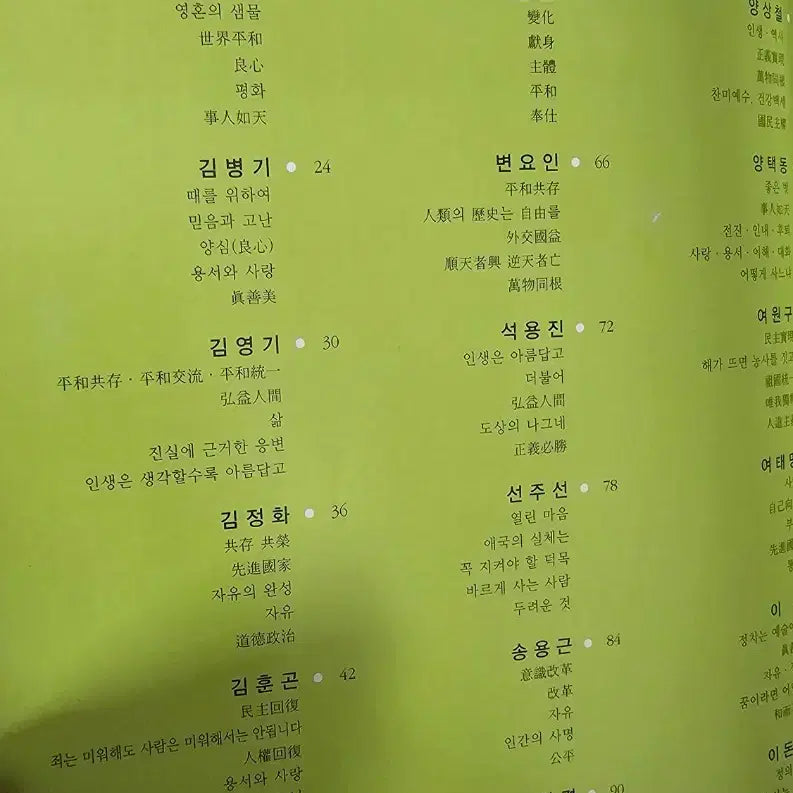 영혼의 샘물
世界平和
良心
평화
事人如天
김병기 • 24
때를 위하여
믿음과 고난
양심(良心)
용서와 사랑
眞善美
김영기 • 30
平和共存·平和交流·平和統一
弘益人間
삶
진실에 근거한 응변
인생은 생각할수록 아름답고
김정화 • 36
共存 共榮
先進國家
자유의 완성
자유
道德政治
김훈곤 • 42
民主回復
죄는 미워해도 사람은 미워해서는 안됩니다
人權回復
용서와 사랑
變化
獻身
主體
平和
奉仕
변요인 • 66
平和共存
人類의 歷史는 自由를
外交國益
順天者興 逆天者亡
萬物同根
석용진 • 72
인생은 아름답고
더불어
弘益人間
도상의 나그네
正義必勝
선주선 • 78
열린 마음
애국의 실체는
꼭 지켜야 할 덕목
바르게 사는 사람
두려운 것
송용근 • 84
意識改革
改革
자유
인간의 사명
公平
90
양상철
인생·역사
正義實現
萬物同根
찬미예수, 건강백세
國民主權
양택동
좋은 벗
事人如天
전진·인내·후퇴
사랑·용서·이해·대화
어떻게 사느냐
여원구
民主實現
해가 뜨면 농사를 짓고
祖國統一
唯我獨
人道主
여태명
自己向
先進國
이
정치는 예술
자유·
꿈이라면 어
이돈
정의